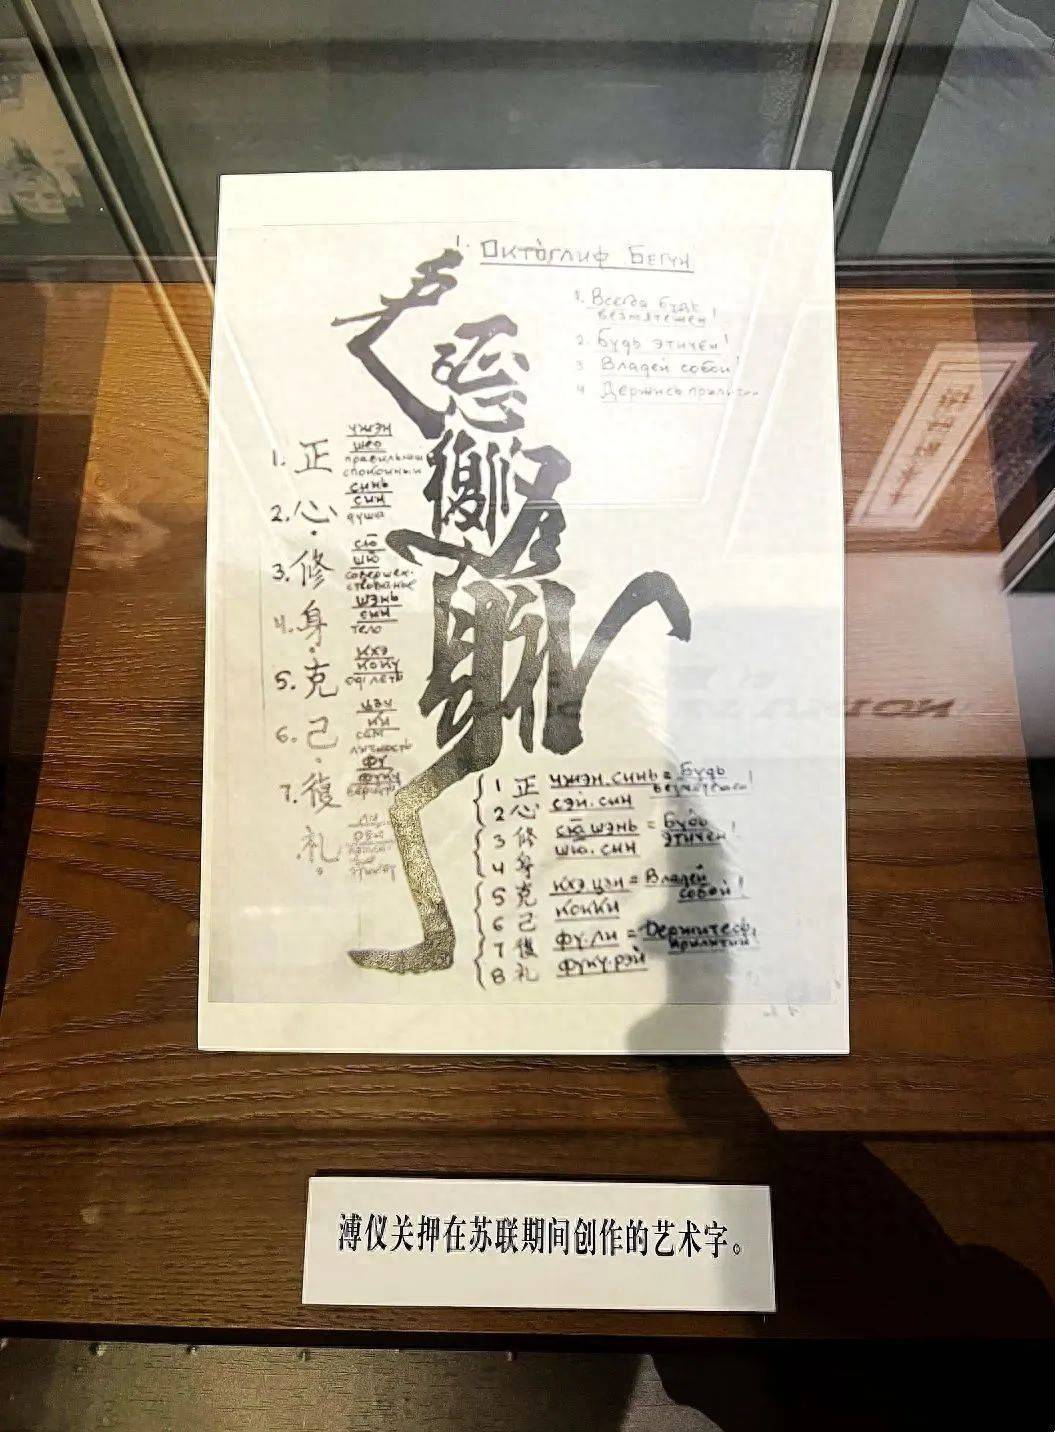 1. Октоглиф Бегун
1. Всегда будь
безмятежен!
2. Будь этичен!
3 Владей собой!
4 Держись прилити
1. 正
чжэн
шео
правильный
спокойный
2. 心
синь
син
душа
3. 修
сю
шю
совершен-
ствование
4. 身
шэнь
син
тело
5. 克
кхэ
коку
одолеть
6. 己
цзи
ки
сам
личность
7. 復
фу
фуку
礼
ли
{ 1 正 чжэн.синь = Будь
безмятежен!
2 心 сэй.син
{ 3 修 сю шэнь = Будь
этичен!
шю.син
4 身
{ 5 克 кхэ цзи = Владей
собой!
6 己 кокки
{ 7 復 фу.ли = Держитесь
прилитий!
8 礼 фуку.рэй
溥仪关押在苏联期间创作的艺术字。